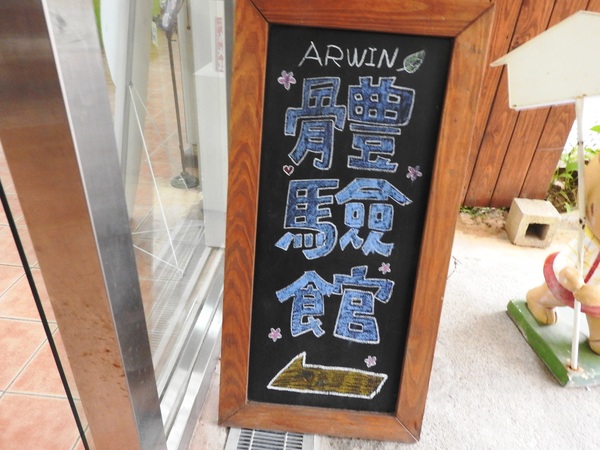 ARWIN
體
驗
館